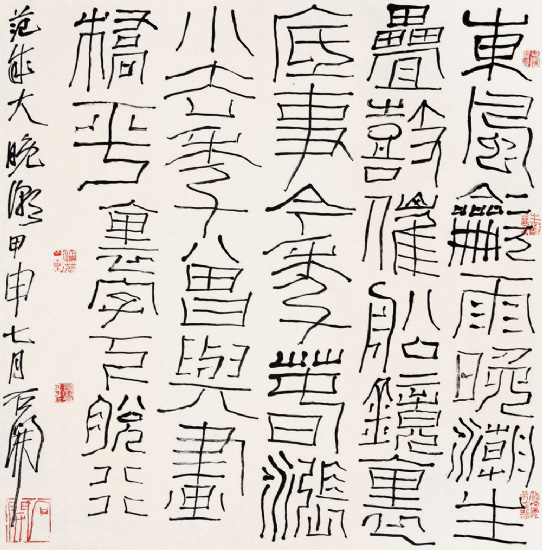 東風龡雨晚潮生
疊鼓催船鏡裏
底事今年春漲
小去年曾與畫
橋平 裏字下脫行
范成大晚潮甲申七月石開
石開